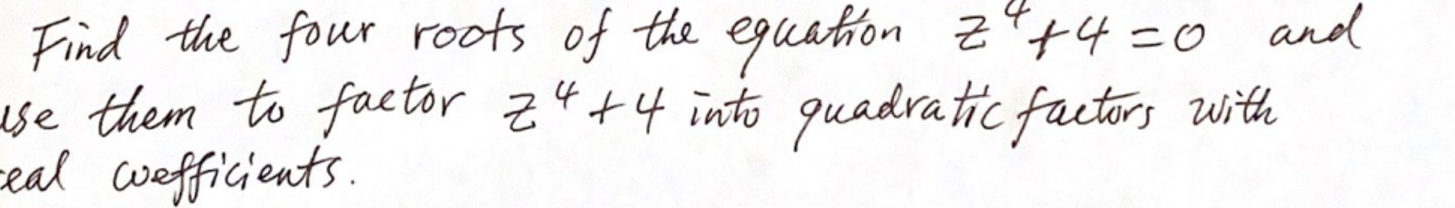 Find the four roots of the equation z⁴+4=0 and
use them to factor z⁴+4 into quadratic factors with
real coefficients.